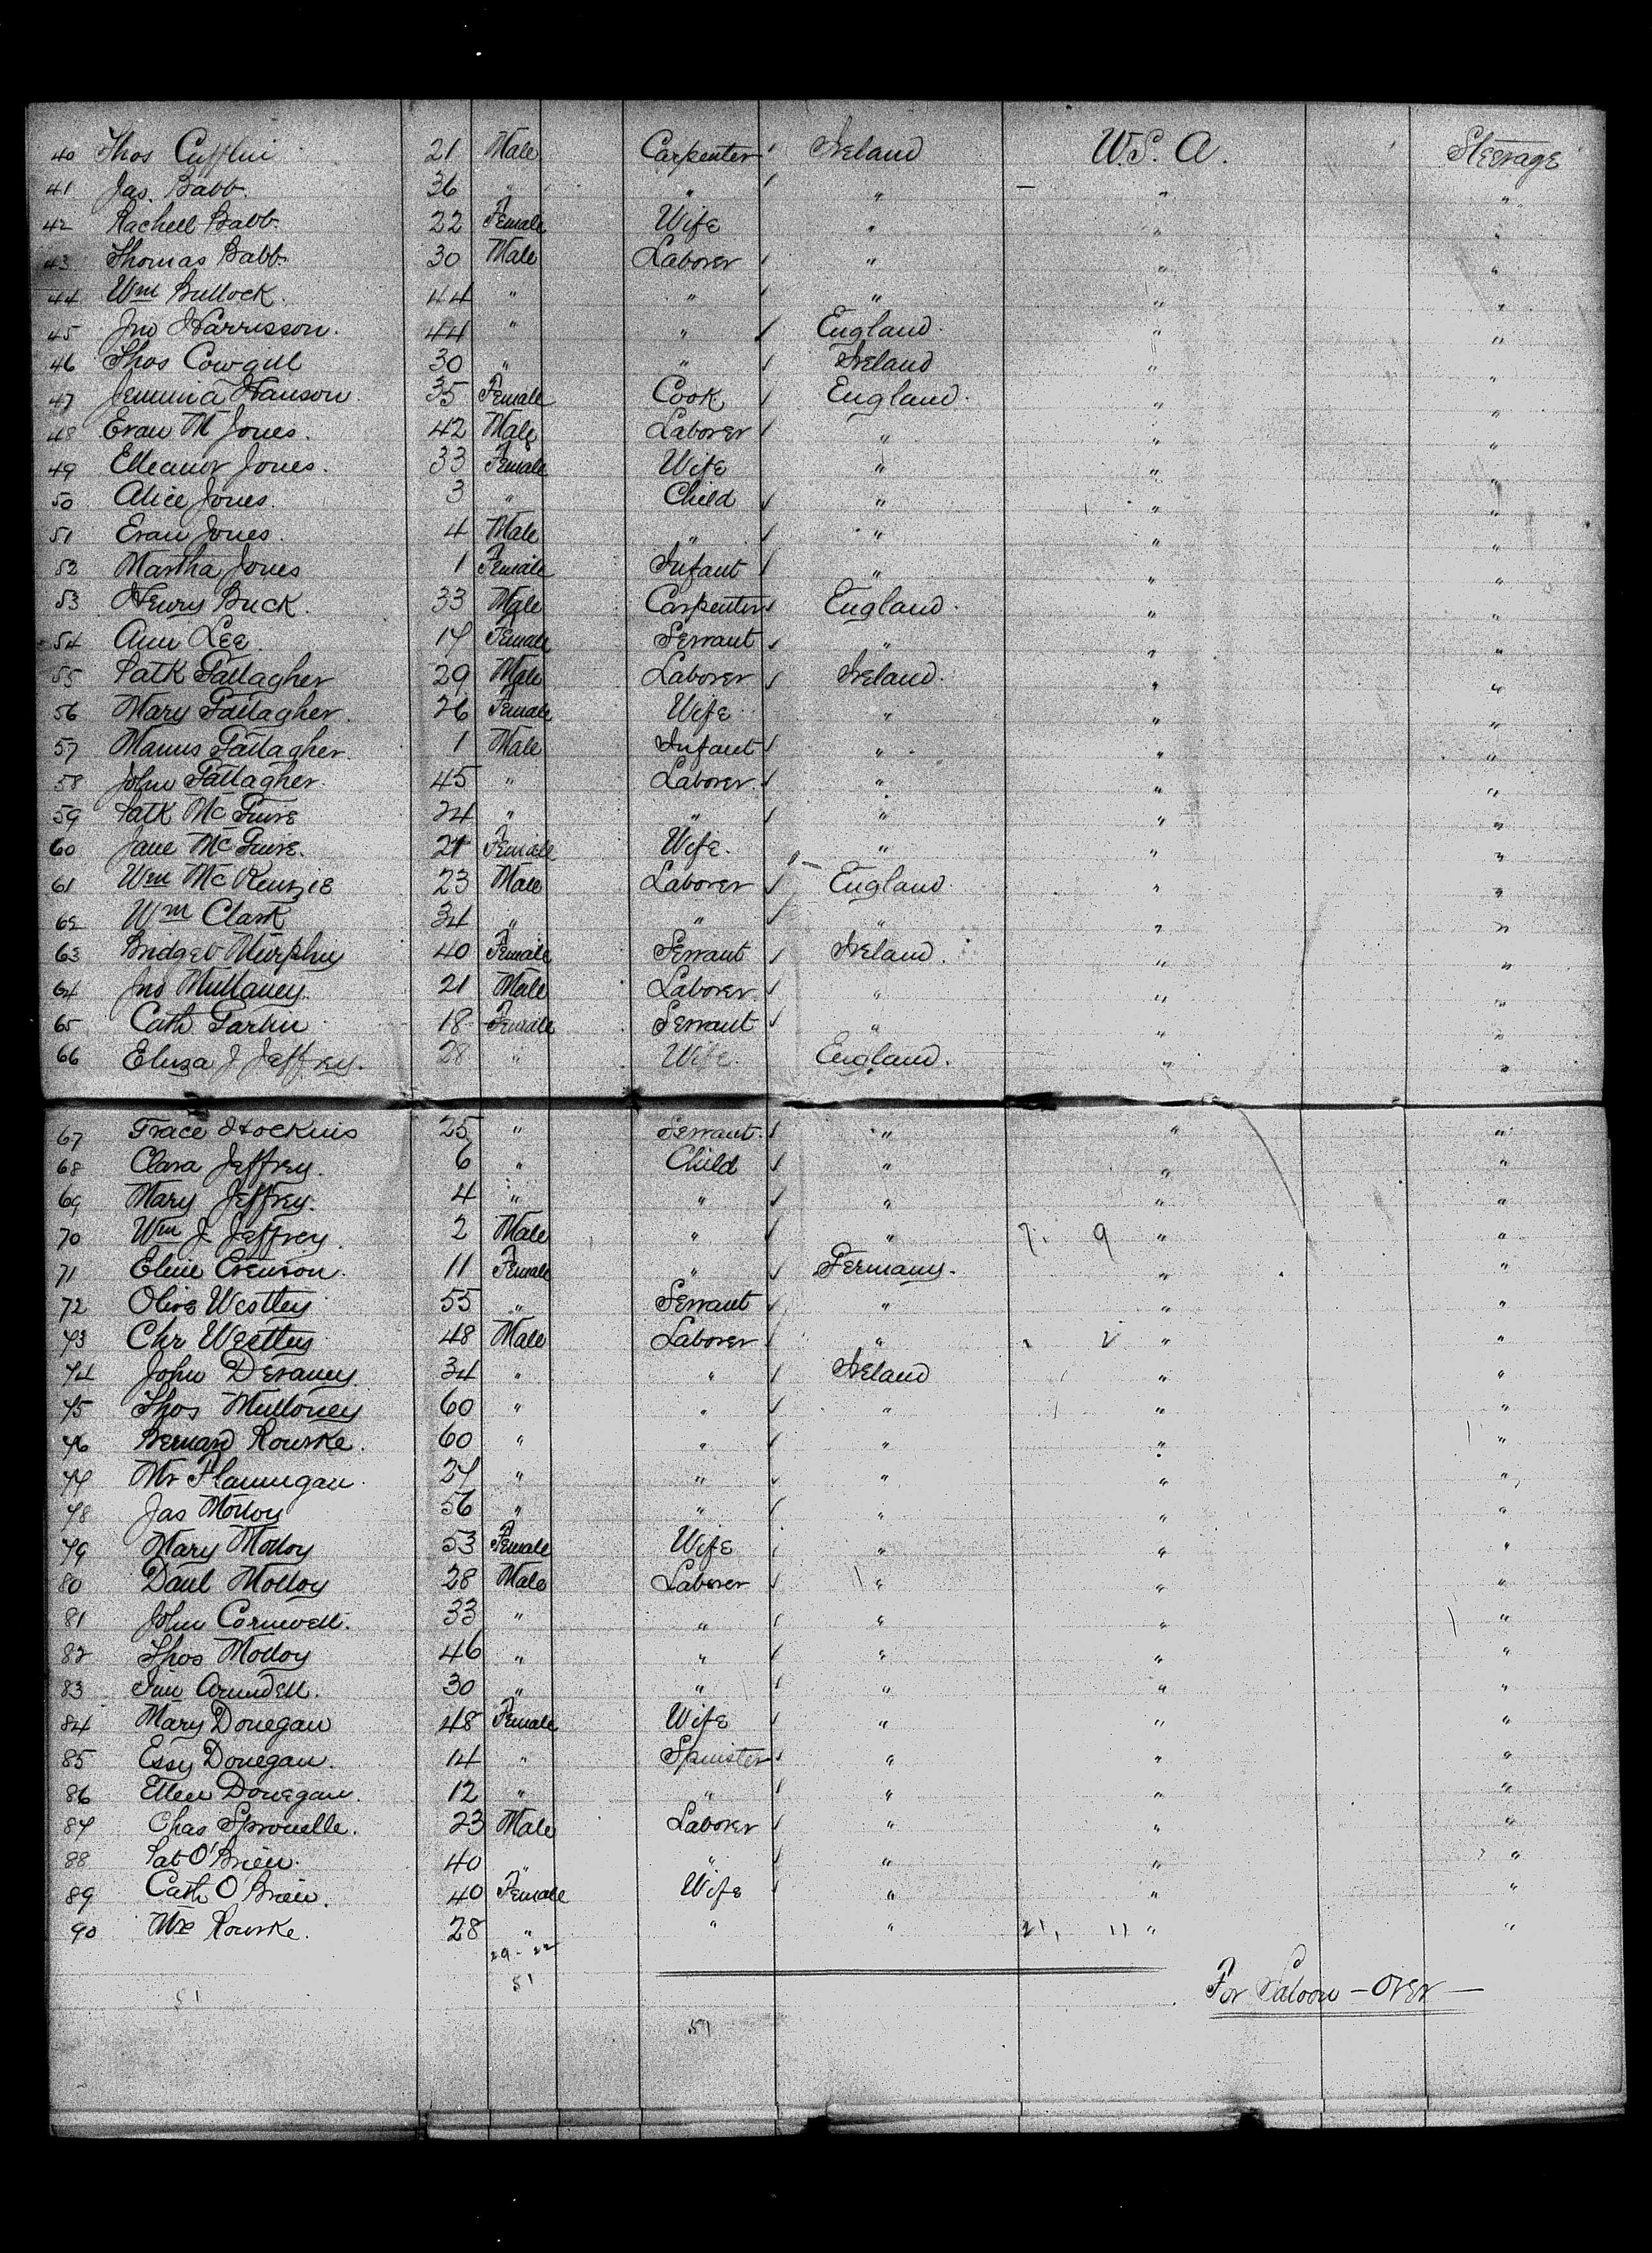 40 Thos Cufflin 21 Male Carpenter Ireland U.S.A. Steerage
41 Jas. Babb. 36 " " " " "
42 Rachell Babb. 22 Female Wife " " "
43 Thomas Babb. 30 Male Laborer " " "
44 Wm Bullock. 44 " " " " "
45 Jno Harrisson. 44 " " England. " "
46 Thos Cowgill 30 " " Ireland " "
47 Jemima Hanson. 35 Female Cook England. " "
48 Evan M Jones. 42 Male Laborer " " "
49 Elleanor Jones. 33 Female Wife " " "
50 Alice Jones. 3 " Child " " "
51 Evan Jones. 4 Male " " " "
52 Martha Jones 1 Female Infant " " "
53 Henry Buck. 33 Male Carpenter England. " "
54 Ann Lee. 17 Female Servant " " "
55 Patk Gallagher 29 Male Laborer Ireland. " "
56 Mary Gallagher. 26 Female Wife " " "
57 Manus Gallagher. 1 Male Infant " " "
58 John Gallagher. 45 " Laborer. " " "
59 Patk McGuire 24 " " " " "
60 Jane McGuire. 21 Female Wife. " " "
61 Wm McKenzie 23 Male Laborer England. " "
62 Wm Clark 34 " " " " "
63 Bridget Murphy 40 Female Servant Ireland. " "
64 Jno Mullaney. 21 Male Laborer. " " "
65 Cath 18 Female Servant " " "
66 Eliza J Jeffrey. 28 " Wife. England. " "
67 Grace Hockins 25 " Servant. " " "
68 Clara Jeffrey. 6 " Child " " "
69 Mary Jeffrey. 4 " " " " "
70 Wm J. Jeffrey. 2 Male " " 7. 9 " "
71 Eline Evenson. 11 Female " Germany. " "
72 Olive Westley 55 " Servant " " "
73 Chr Westley 48 Male Laborer " " "
74 John Devaney. 34 " " Ireland " "
75 Thos Mulloney 60 " " " " "
76 Bernard Rourke. 60 " " " " "
77 Mr Flannigan. 27 " " " " "
78 Jas Molloy 56 " " " " "
79 Mary Molloy 53 Female Wife " " "
80 Danl Molloy 28 Male Laborer " " "
81 John Cornwell. 33 " " " " "
82 Thos Molloy 46 " " " " "
83 Arundell. 30 " " " " "
84 Mary Donegan 48 Female Wife " " "
85 Essy Donegan. 14 " Spinster " " "
86 Ellen Donegan. 12 " " " " "
87 Chas Sprouelle. 23 Male Laborer " " "
88 Pat O'Brien. 40 " " " " "
89 Cath O'Brien. 40 Female Wife " " "
90 Rourke. 28 " " " 21, 11 " "
29 - 22
51
51
51
For Saloon - over -